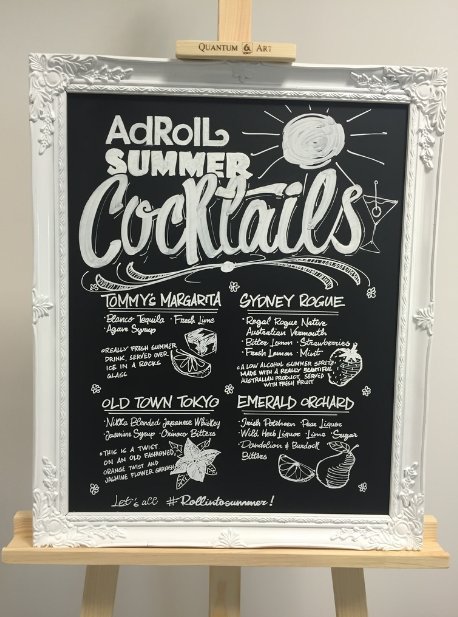 QUANTUM & ART
AdRoll
SUMMER
Cocktails
TOMMY'S MARGARITA
· Blanco Tequila · Fresh Lime
· Agave Syrup
* REALLY FRESH SUMMER
DRINK, SERVED OVER
ICE IN A ROCKS
GLASS
SYDNEY ROGUE
· Regal Rogue Native
Australian Vermouth
· Bitter Lemon · Strawberries
· Fresh Lemon · Mint
* A LOW ALCOHOL SUMMER SPRITZ
MADE WITH A REALLY BEAUTIFUL
AUSTRALIAN PRODUCT, SERVED
WITH FRESH FRUIT
OLD TOWN TOKYO
· Nikka Blended Japanese Whiskey
· Jasmine Syrup · Orinoco Bitters
* THIS IS A TWIST
ON AN OLD FASHIONED,
ORANGE TWIST AND
JASMINE FLOWER GARNISH
EMERALD ORCHARD
· Irish Potcheen · Pear Liquor
· Wild Herb Liquor · Lime · Sugar
· Dandelion & Burdock
Bitters
Let's all #Rollintosummer!